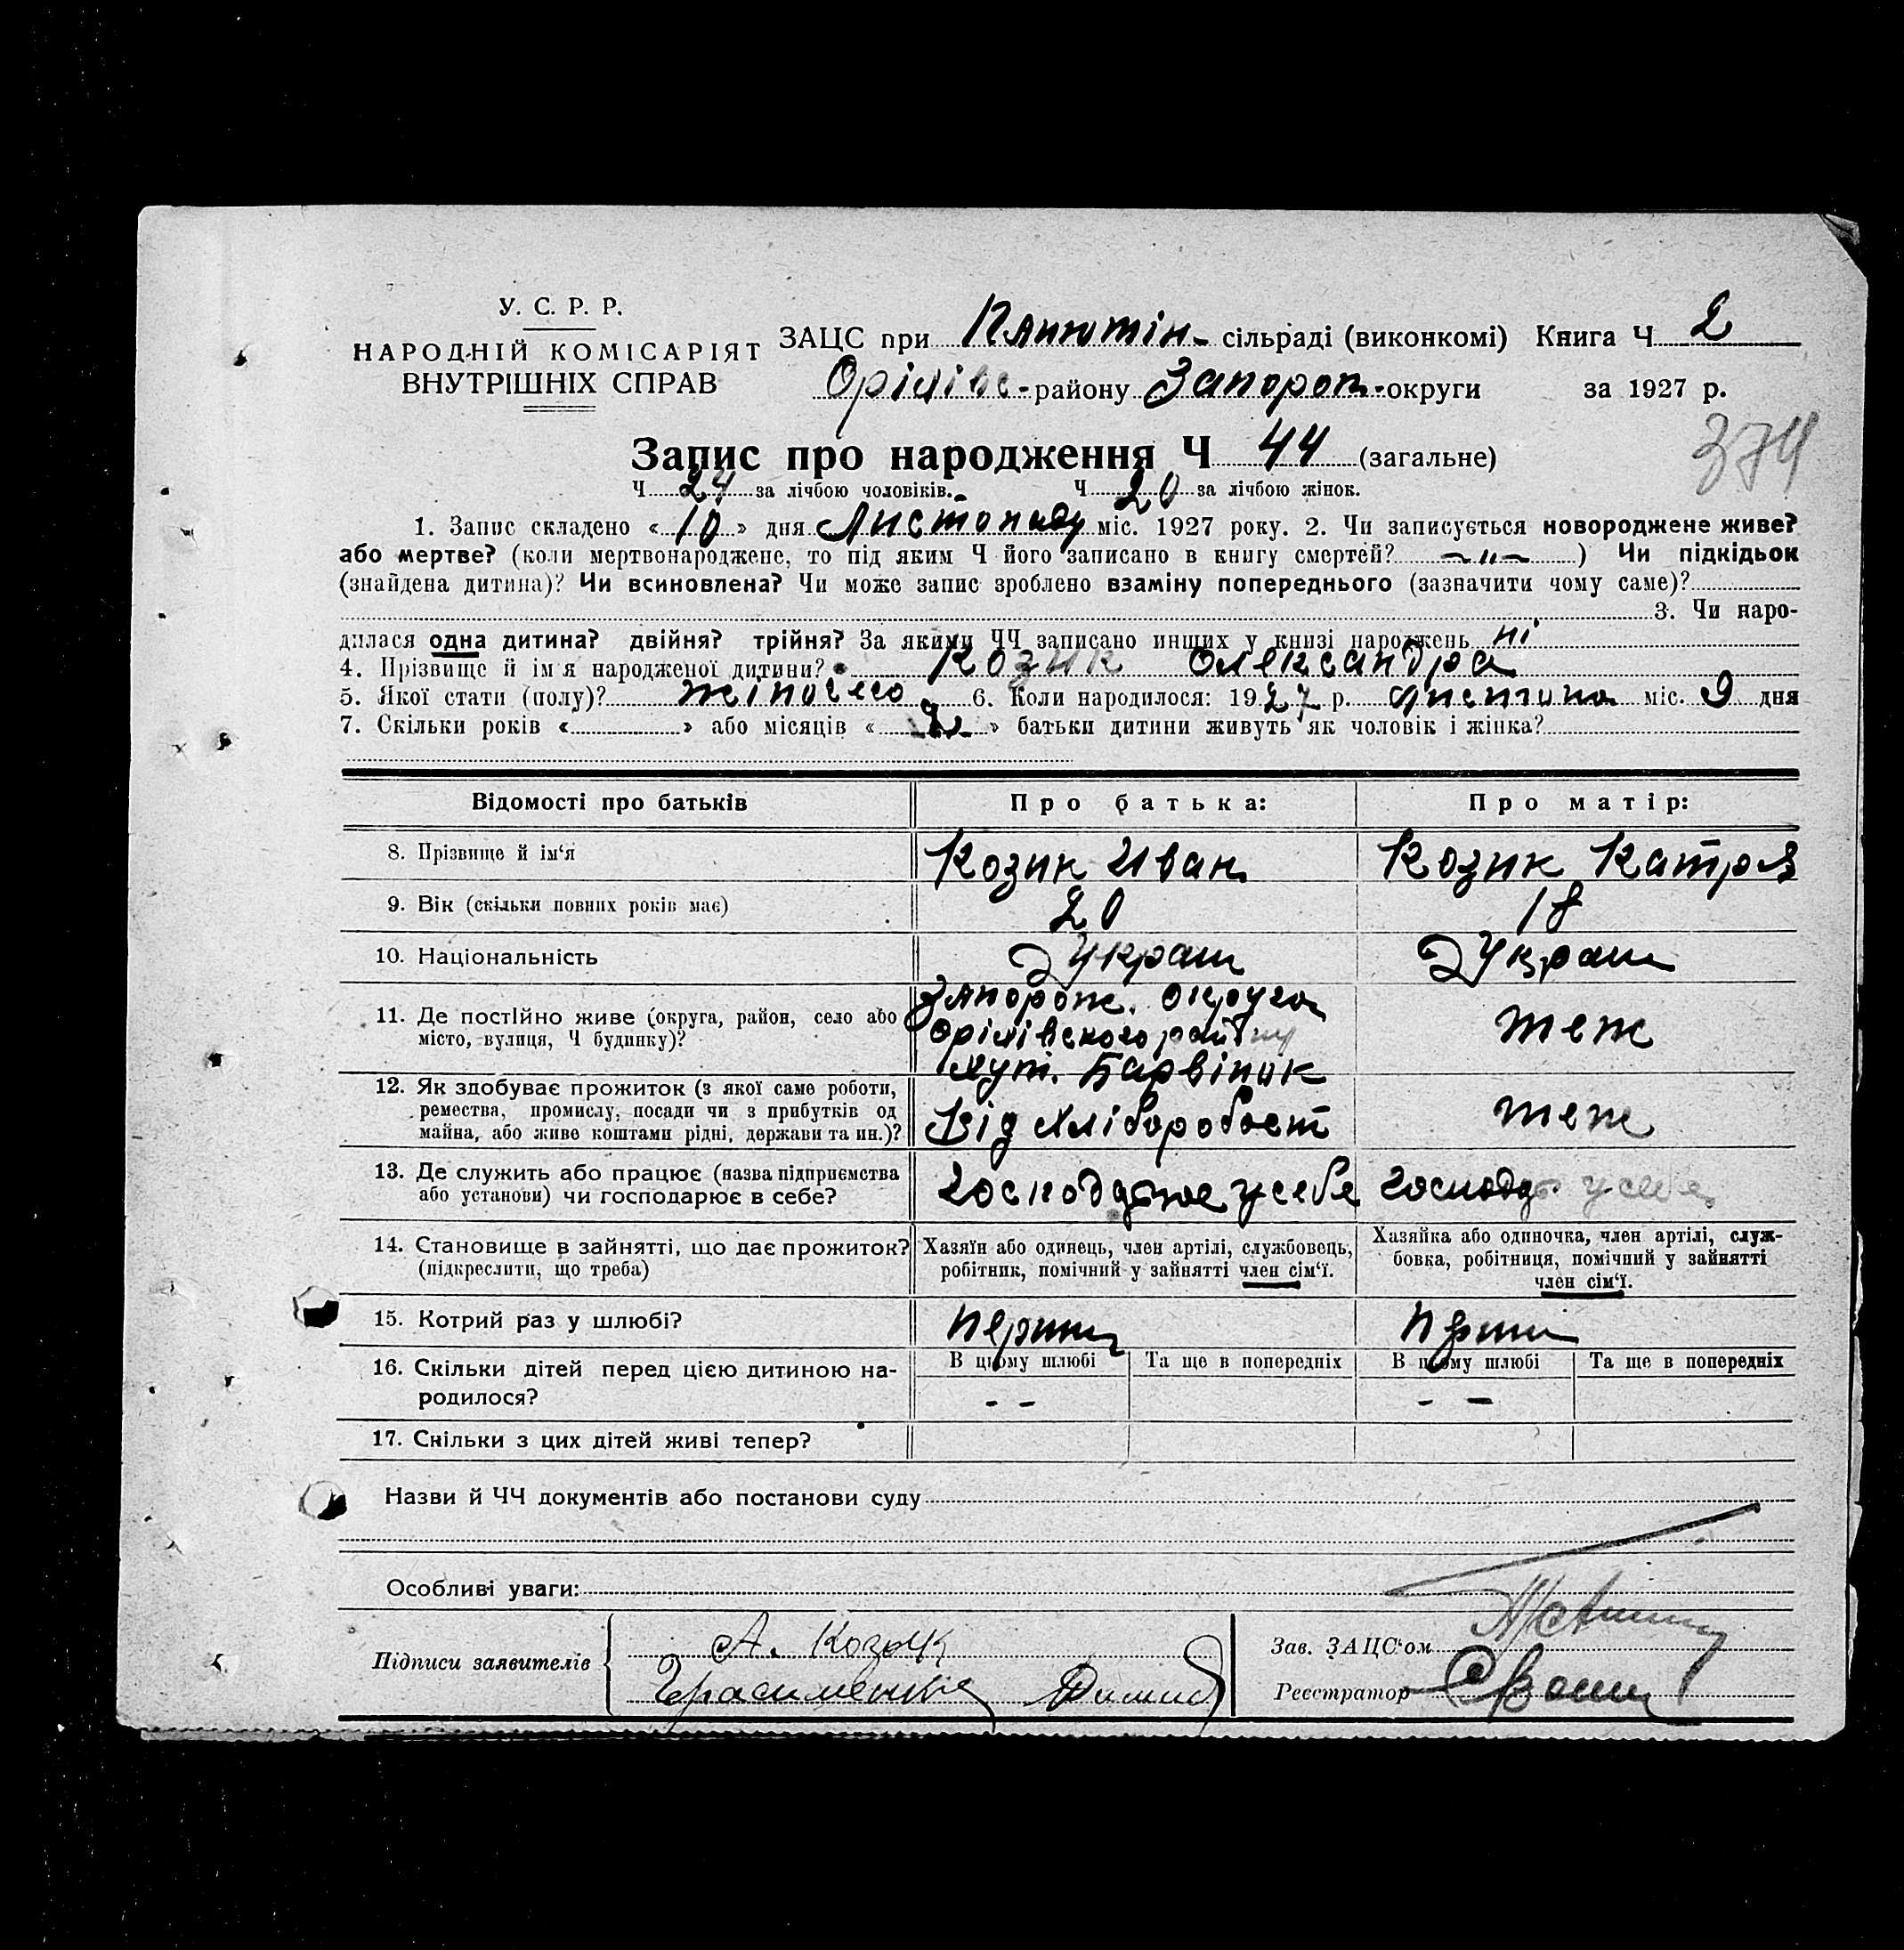 У. С. Р. Р.
НАРОДНІЙ КОМІСАРІЯТ
ВНУТРІШНІХ СПРАВ
ЗАЦС при Панютін- сільраді (виконкомі) Книга Ч 2
Орілівс-району Запорож-округи за 1927 р.
374
Запис про народження Ч 44 (загальне)
Ч 24 за лічбою чоловіків. Ч 20 за лічбою жінок.
1. Запис складено « 10 » дня Листопаду міс. 1927 року. 2. Чи записується новороджене живе?
або мертве? (коли мертвонароджене, то під яким Ч його записано в книгу смертей? -"- ) Чи підкідьок
(знайдена дитина)? Чи всиновлена? Чи може запис зроблено взаміну попереднього (зазначити чому саме)?
3. Чи наро-
дилася одна дитина? двійня? трійня? За якими ЧЧ записано инших у книзі народжень ні
4. Прізвище й ім'я народженої дитини? Козик Олександра
5. Якої стати (полу)? жіночого 6. Коли народилося: 1927 р. Листопа міс. 9 дня
7. Скільки років « » або місяців « » батьки дитини живуть як чоловік і жінка?
Відомості про батьків Про батька: Про матір:
8. Прізвище й ім'я Козик Иван Козик Катря
9. Вік (скільки повних років має) 20 18
10. Національність Украін Украін
11. Де постійно живе (округа, район, село або місто, вулиця, Ч будинку)?
Запорож. округа
Орілівського району
Хут. Барвінок
теж
12. Як здобуває прожиток (з якої саме роботи,
ремества, промислу, посади чи з прибутків од
майна, або живе коштами рідні, держави та ин.)?
Від Хліборобст
теж
13. Де служить або працює (назва підприємства
або установи) чи господарює в себе?
у себе
у себе
14. Становище в зайнятті, що дає прожиток?
(підкреслити, що треба)
Хазяїн або одинець, член артілі, службовець,
робітник, помічний у зайнятті член сім'ї.
Хазяйка або одиночка, член артілі, служ-
бовка, робітниця, помічний у зайнятті
член сім'ї.
15. Котрий раз у шлюбі? перший перший
16. Скільки дітей перед цією дитиною на-
родилося?
В цьому шлюбі Та ще в попередніх В цьому шлюбі Та ще в попередніх
- - - -
17. Скільки з цих дітей живі тепер?
Назви й ЧЧ документів або постанови суду
Особливі уваги:
Підписи заявителів
А. Козик
Герасименко
Зав. ЗАЦС'ом
Реєстратор